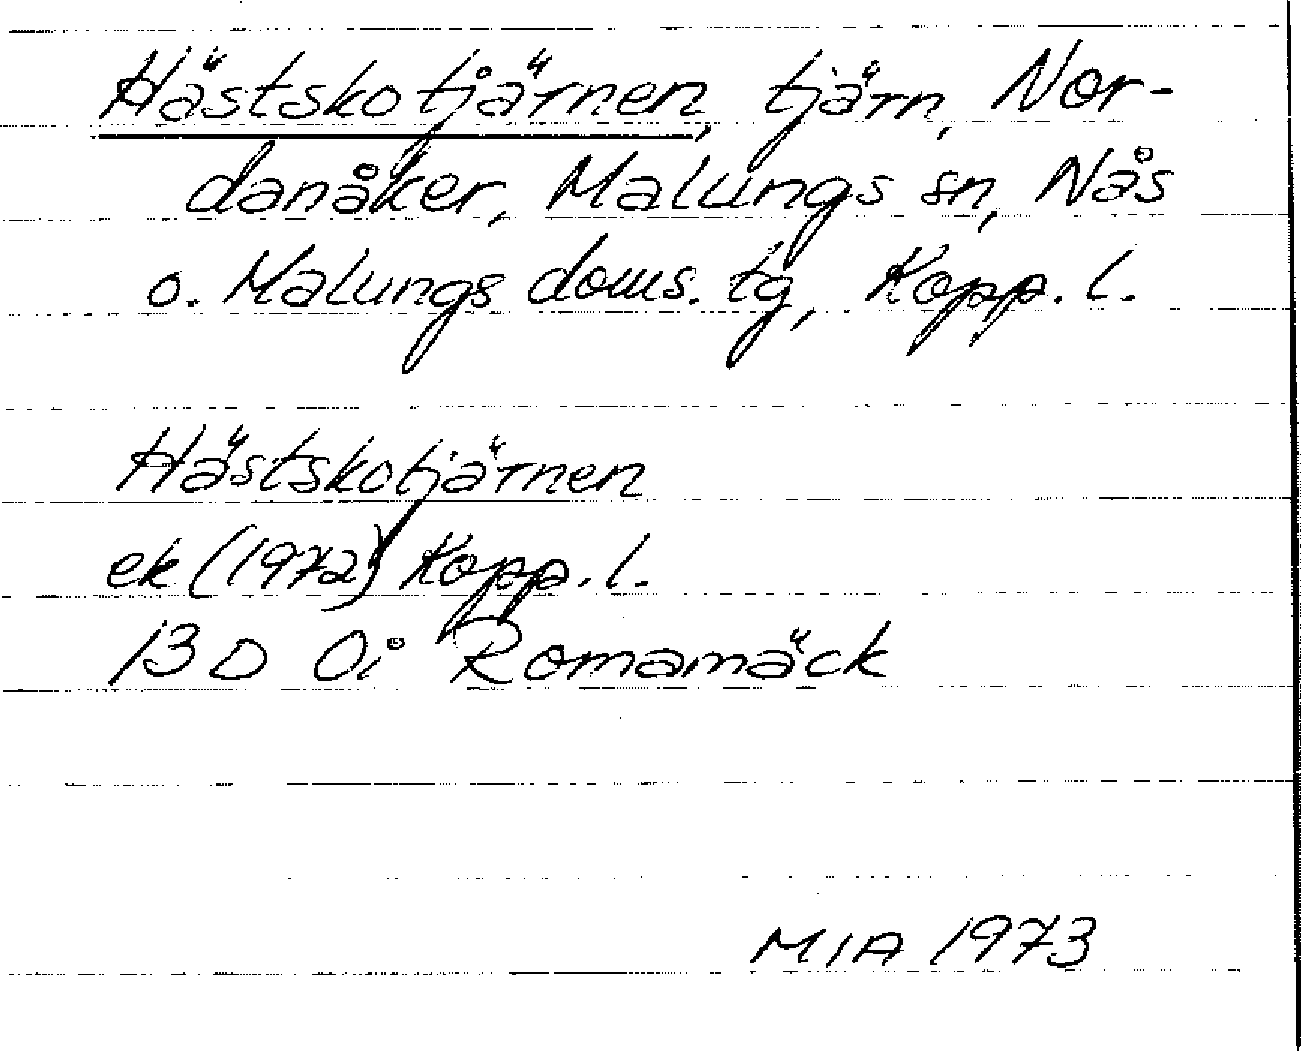 Hästskotjärnen, tjärn, Nor-
danåker, Malungs sn, Nås
o. Malungs doms. tg, Kopp. l.
Hästskotjärnen
ek (1972) Kopp. l.
13 D 0i Romamäck
MIA 1973